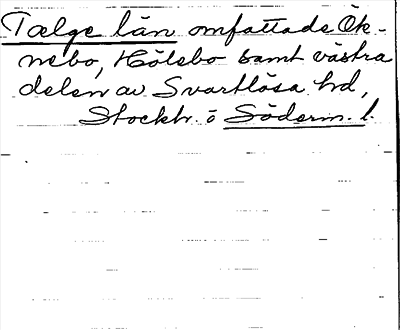 Tælge län omfattade Ök-
nebo, Hölebo samt västra
delen av Svartlösa hd,
Stockh. o Söderm. l.